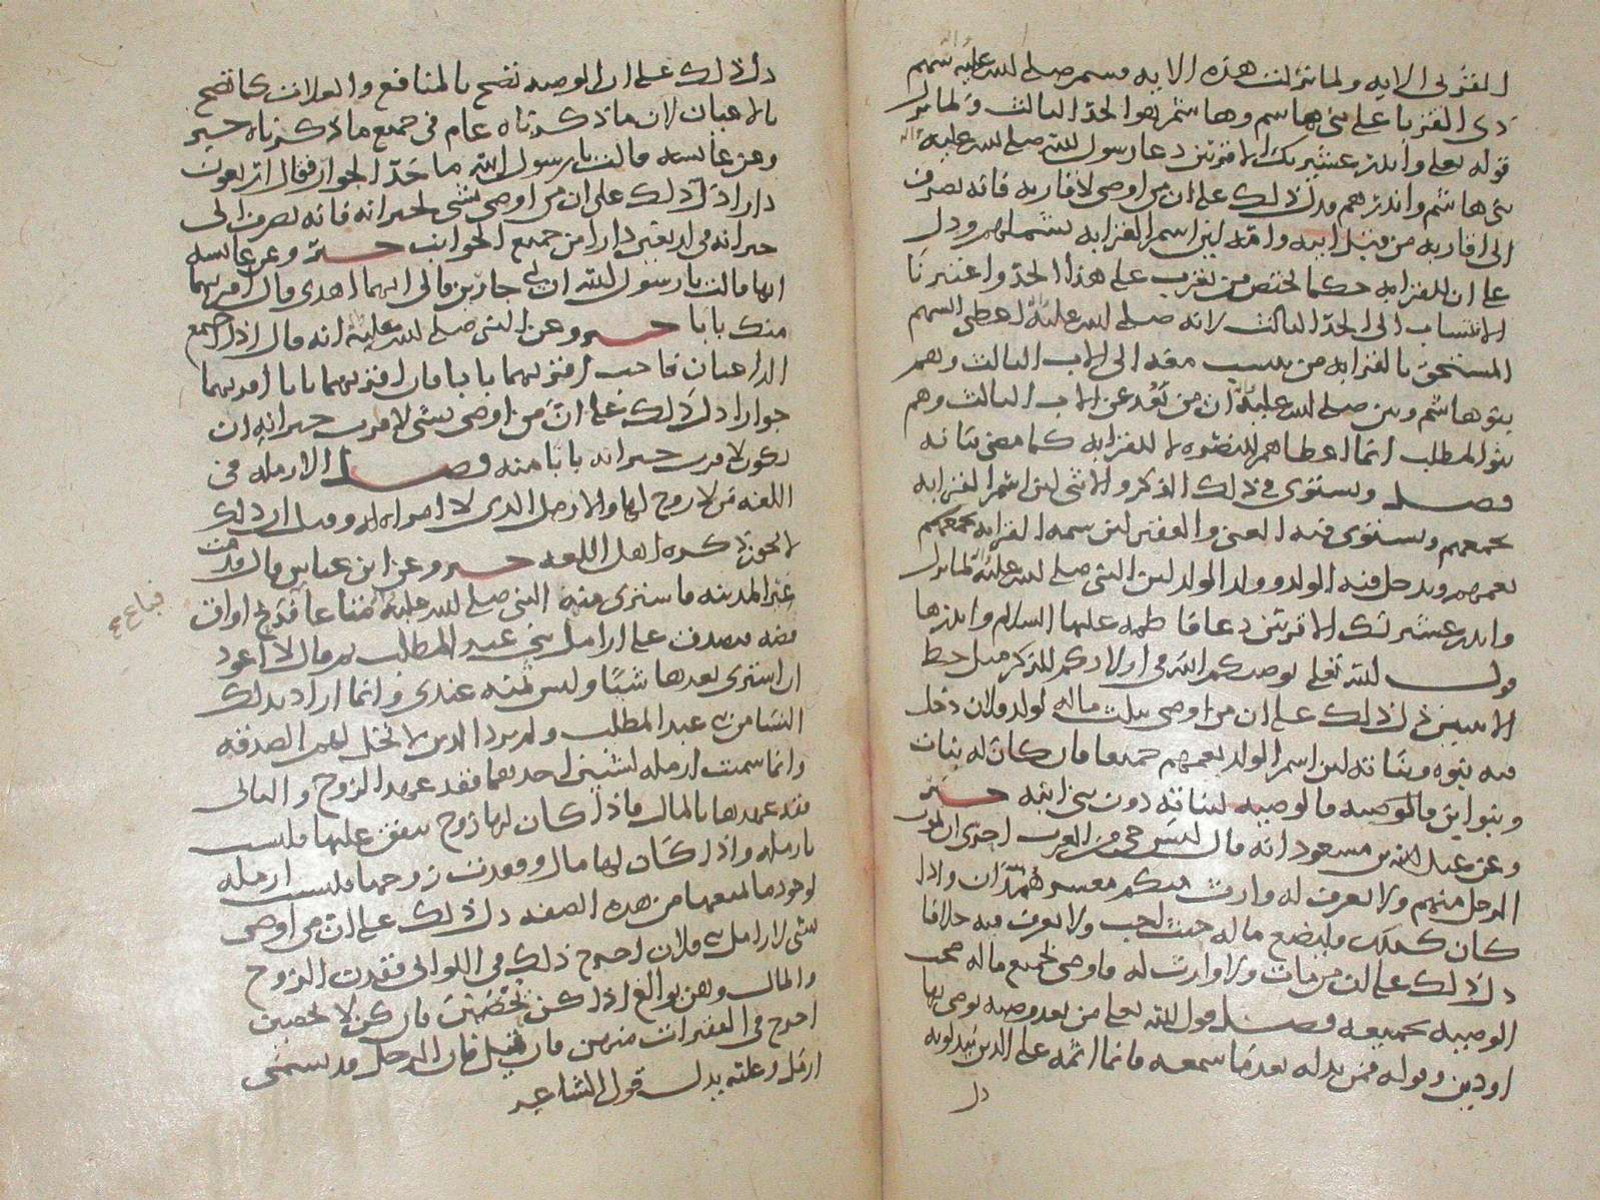 القربى الآيه ولما نزلت هذه الايه قسم رسول الله صلى الله عليه سهم
ذى القربا على بنى هاسم وهاشم هو الحد الثالث ولما نزل
قوله تعلى وانذر عشيرتك الاقربين دعا رسول الله صلى الله عليه وآله
بنى هاشم وانذرهم فدل ذلك على ان من اوصى لاقاربه فانه يصرف
الى اقاربه من قبل ابيه وامه لان اسم القرابه يشملهم ودل
على ان للقرابه حكما يختص من تقرب على هذا الحد واعتبرنا
الانتساب الى الحد الثالث لانه صلى الله عليه اعطى السهم
المستحق بالقرابه من ينسب معه الى الاب الثالث وهم
بنو هاشم وبين صلى الله عليه ان من بعد عن الاب الثالث وهم
بنو المطلب انما اعطاهم للنصره لا للقرابه كما مضى بيانه
فصل ويستوى فى ذلك الذكر والانثى لان اسم القرابه
يجمعهم ويستوى فيه الغنى والفقير لان سمه القرابه تجمعهم
تعمهم ويدخل فيه الولد وولد الولد لان النبى صلى الله عليه لما نزل
وانذر عشيرتك الاقربين دعا فاطمه عليها السلام وانذرها
قول الله تعلى يوصيكم الله فى اولادكم للذكر مثل حظ
الانثيين دل ذلك على ان من اوصى بثلث ماله لولد فلان دخل
فيه بنوه وبناته لان اسم الولد يعمهم جميعا فان كان له بنات
وبنو ابن فالوصيه لبناته دون بنى ابنه خبر
وعن عبد الله بن مسعود انه قال ليس حى من العرب احرى ان يموت
الرجل منهم ولا يعرف له وارث منكم معشر همدان واذا
كان كذلك فليضع ماله حيث احب ولا يعرف فيه خلافا
دل ذلك على ان من مات ولا وارث له فاوصى بجميع ماله صحت
الوصيه بجميعه فصل قول الله تعلى من بعد وصيه يوصى بها
او دين وقوله فمن بدله بعد ما سمعه فانما اثمه على الذين يبدلونه
دل
دل ذلك على ان الوصيه تصح بالمنافع والغلات كما تصح
بالاعيان لان ما ذكرناه عام فى جميع ما ذكرناه خبر
وعن عائشه قالت يا رسول الله ما حد الجوار فقال اربعون
دارا دل ذلك على ان من اوصى بشى لجيرانه فانه يصرف الى
جيرانه فى اربعين دارا من جميع الجوانب خبر وعن عائشه
انها قالت يا رسول الله ان لى جارين فالى ايهما اهدى قال اقربهما
منك بابا خبر وعن النبى صلى الله عليه انه قال اذا اجتمع
الداعيان فاجب اقربهما بابا فان اقربهما بابا اقربهما
جوارا دل ذلك على ان من اوصى بشى لاقرب جيرانه ان
يكون لاقرب جيرانه بابا منه فصل الارمله فى
اللغه من لا زوج لها والارمل الذى لا امراه له وقيل ان ذلك
لا يجوز ذكره اهل اللغه خبر وعن ابن عباس قال قدمت
عير المدينه فاشترى منه النبى صلى الله عليه متاعا فربح اواق
فضه فتصدق على ارامل بنى عبد المطلب ثم قال لا اعود
ان اشترى بعدها شيئا وليس ثمنه عندى وانما اراد بذلك
النسا من بنى عبد المطلب ولم يرد الذين لا تحل لهم الصدقه
وانما سميت ارمله لشيئين احدهما فقد عهد الزوج والثانى
فقد عهدها بالمال فاذا كان لها زوج ينفق عليها فليست
بارمله واذا كان لها مال وفقدت زوجها فليست ارمله
لوجود ما يمنعها من هذه الصفه دل ذلك على ان من اوصى
بشى لارامل بنى فلان اخرج ذلك فى اللواتى فقدن الزوج
والمال وهن بوالغ اذا كن يحصين فان كن لا يحصين
اخرج فى الفقيرات منهن فان قيل فان الرجل قد يسمى
ارمل وعليه يدل قول الشاعر